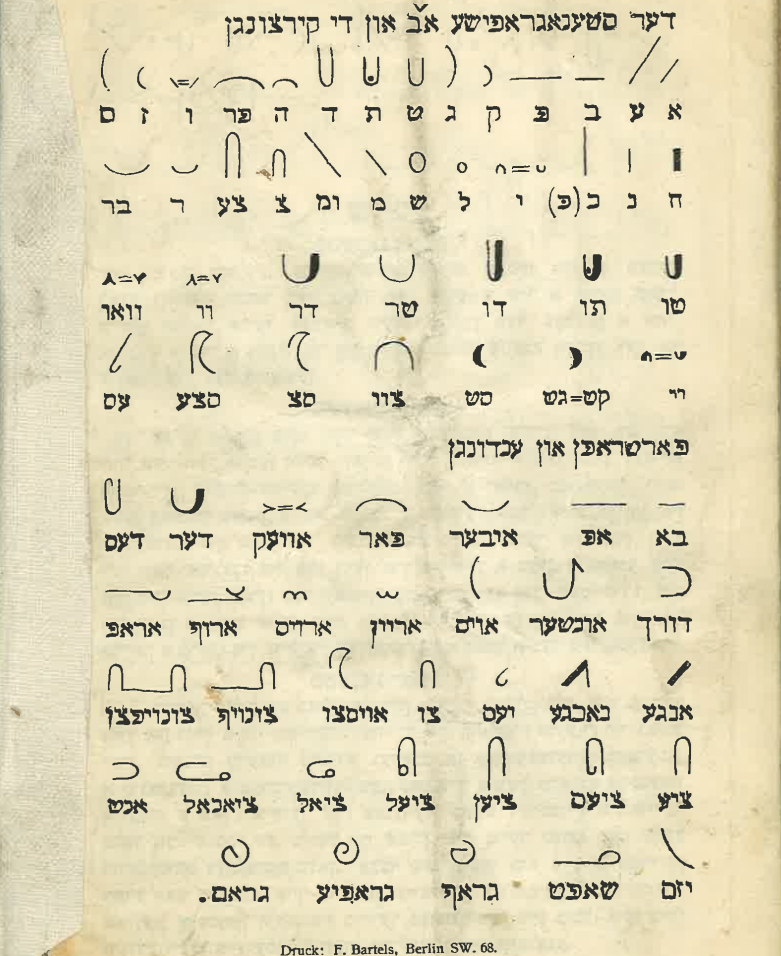 דער סטענאגראפישע אב און די קירצונגן
א ע ב פ ק ג ט ת ד ה פר ו ז ס
ח נ כ(פ) י ל ש מ ומ צ צע ר בר
טו תו דו טר דר וי וואו
יי קש=גש סש צוו סצ סצע עס
פארטראפן און ענדונגן
בא אפ איבער פאר אוועק דער דעס
דורך אונטער אויס אריין ארויס ארויף אראפ
אנגע נאכגע יעס צו אויסצו צונויף צונויפצו
ציע ציעס ציען ציעל ציאל ציאנאל אכט
יזם שאפט גראף גראפיע גראם.
Druck: F. Bartels, Berlin SW. 68.